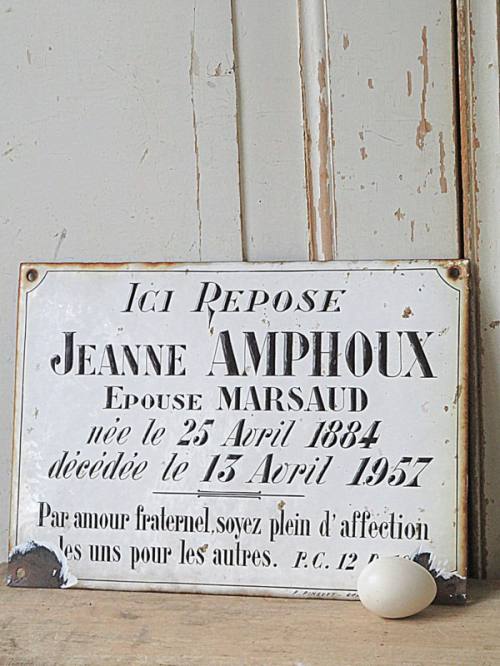 ICI REPOSE
JEANNE AMPHOUX
EPOUSE MARSAUD
née le 25 Avril 1884
décédée le 13 Avril 1957
Par amour fraternel, soyez plein d'affection
les uns pour les autres. P.C. 12